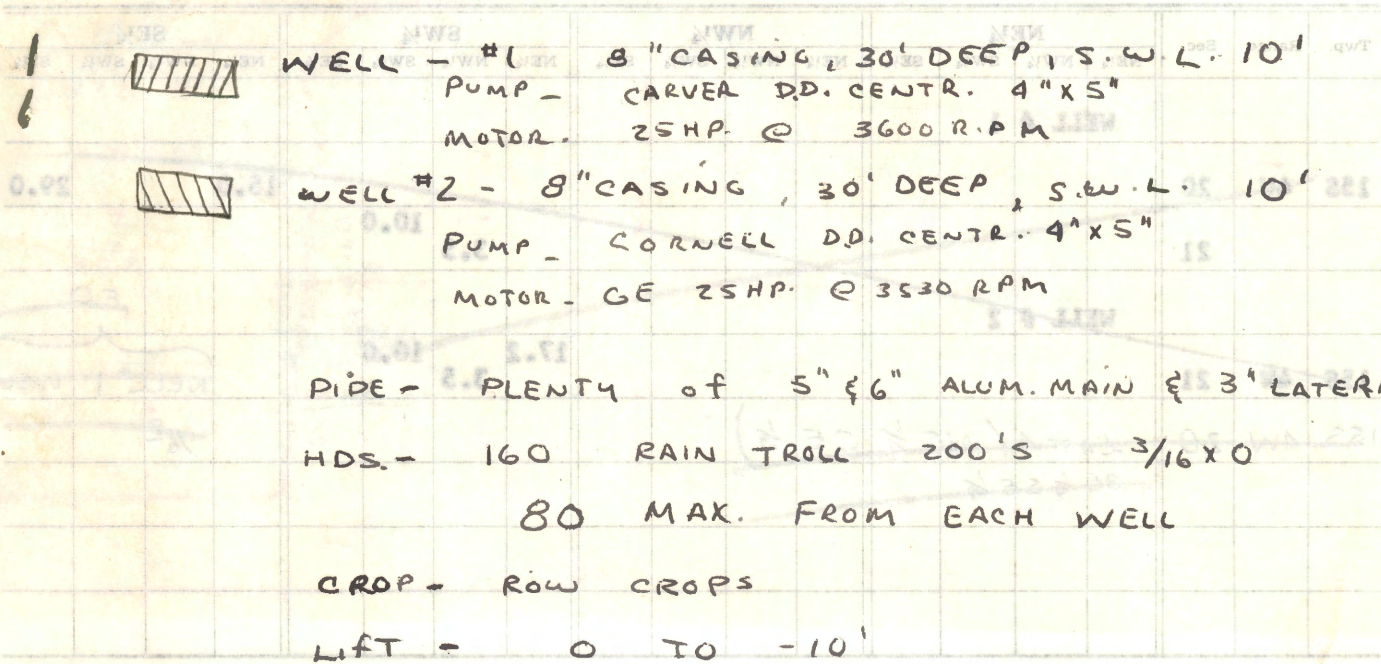 WELL - #1 8" CASING, 30' DEEP, S.W.L. 10'
PUMP - CARVER D.D. CENTR. 4" X 5"
MOTOR. 25 HP. @ 3600 R.P.M
WELL #2 - 8" CASING, 30' DEEP, S.W.L. 10'
PUMP - CORNELL D.D. CENTR. 4" X 5"
MOTOR - GE 25 HP. @ 3530 RPM
PIPE - PLENTY of 5" & 6" ALUM. MAIN & 3" LATERA
HDS. - 160 RAIN TROLL 200'S 3/16 X 0
80 MAX. FROM EACH WELL
CROP - ROW CROPS
LIFT - 0 TO -10'